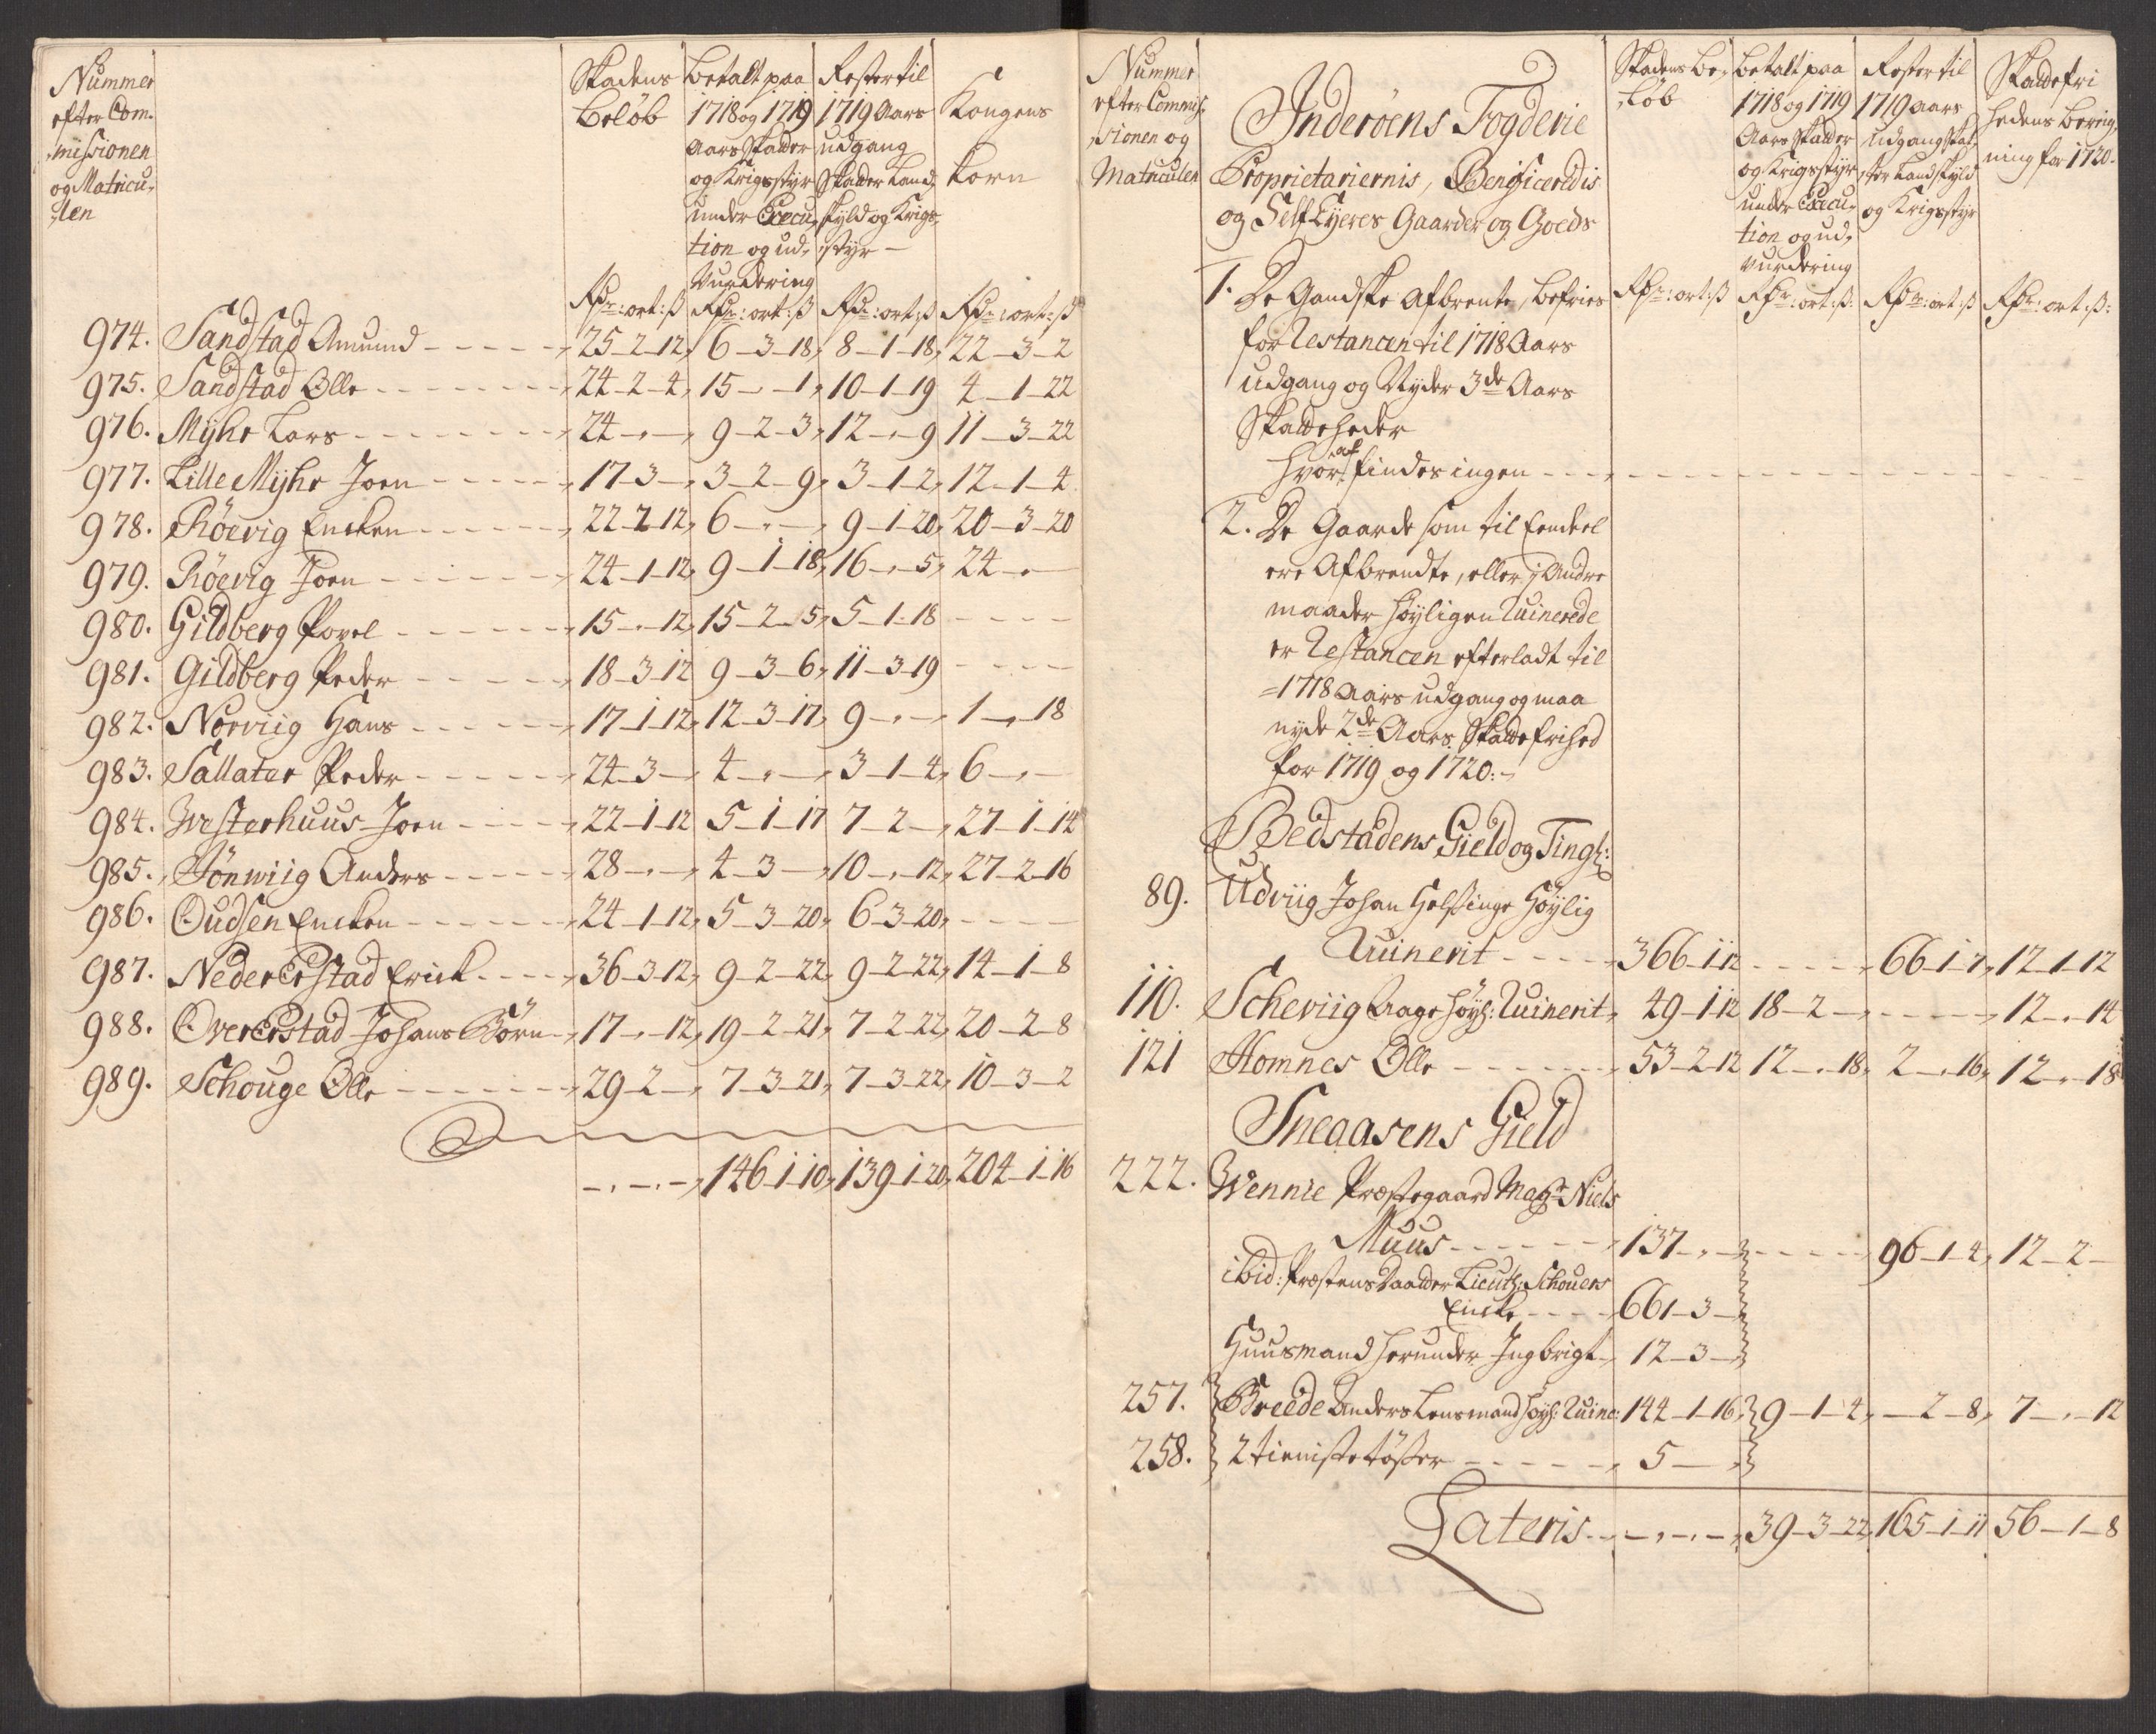 Nummer
efter Com-
missionen
og Matricu-
len
Skadens
beløb
betalt paa
1718 og 1719
Aars Skatter
og Krigsstyr
under Execu-
tion og ud-
vurdering
Rester til
1719 Aars
udgang
Skatter Land-
skyld og Krigs-
styr
Kongens
Korn
Rdr: ort: ß Rdr: ort: ß Rdr: ort: ß Rdr: ort: ß
974. Sandstad Amund 25-2-12 6-3-18 8-1-18 22-3-2
975. Sandstad Olle 24-2-4 15-,-1 10-1-19 4-1-22
976. Myhr Lars 24-,- 9-2-3 12-,-9 11-3-22
977. Lille Myhr Joen 17-3- 3-2-9 3-1-2 12-1-4
978. Röevig Encken 22-2-12 6-,- 9-1-20 20-3-20
979. Röevig Joen 24-1-12 9-1-18 16-,-5 24-,-
980. Gildberg Povel 15-,-12 15-2-5 5-1-18 - - - -
981. Gildberg Peder 18-3-12 9-3-6 11-3-19 - - - -
982. Norviig Hans 17-1-12 12-3-17 9-,- 1-,-18
983. Sallater Peder 24-3- 4-,- 3-1-4 6-,-
984. Westerhuus Joen 22-1-12 5-1-17 7-2- 27-1-14
985. Tönwiig Anders 28-,- 4-3- 10-,-12 27-2-16
986. Oudsen Encken 24-1-12 5-3-20 6-3-20 - - - -
987. Neder Erstad Erick 36-3-12 9-2-22 9-2-22 14-1-8
988. Over Erstad Johans Börn 17-,-12 19-2-21 7-2-22 20-2-8
989. Schouge Olle 29-2- 7-3-21 7-3-22 10-3-2
146-1-10 139-1-20 204-1-16
Nummer
efter Commis-
sionen og
Matriculen
Inderöens Fogderie
Proprietariernis, Beneficeredis
og Self Eyeres Gaarder og Goeds
Skadens Be-
løb
betalt paa
1718 og 1719
Aars Skatter
og Krigsstyr
under Execu-
tion og ud-
vurdering
Rester til
1719 aars
udgang Skat-
ter Landskyld
og Krigsstyr
Skattefri
hedens bereig-
ning for 1720.
Rdr: ort: ß Rdr: ort: ß: Rdr: ort: ß Rdr: ort: ß:
1. De Gandske Afbrente, befries
for Restancen til 1718 Aars
udgang og Nyder 3de Aars
Skatteheder
hvor af findes ingen
2. De Gaarde som til Eendeel
ere Afbrendte, eller j Andre
maader höyligen Ruinerede
er Restancen efterladt til
1718 Aars udgang og maa
nyde 2de Aars Skattefrihed
for 1719 og 1720:
Bedstadens Gield og Tingh:
89. Udviig Johan Helsinge Höylig
Ruinerit 366-1-12 - - - - 66-1-7 12-1-12
110. Scheviig Aage höyl: Ruinerit 49-1-12 18-2- - - - - 12-,-14
121 Homnes Olle 53-2-12 12-,-18 2-,-16 12-,-18
Sneaasens Gield
222. Wennie Præstegaard Magr Niels
Muus 137-,- - - - - 96-1-4 12-2-
ibid: Præstens Daatter Lieuth: Schouers
Encke 661-3-
Huusmand herunder Ingbrigt 12-3-
257. Breede Anders Lensmand höyl: Ruine: 144-1-16 9-1-4 -2-8 7-,-12
258. 2 tieniste töser 5-
Lateris 39-3-22 165-1-11 56-1-8